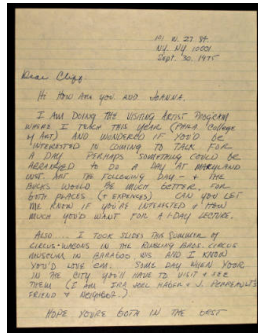 111 N. 27 ST.
NY. NY 10001
Sept. 30, 1975
Dear Cliff
Hi HOW ARE YOU AND JOANNA.
I AM DOING THE VISITING ARTIST PROGRAM
WHERE I TEACH THIS YEAR (PHILA. College
of ART) AND WONDERED IF YOU'D BE
INTERESTED IN COMING TO TALK FOR
A DAY PERHAPS SOMETHING COULD BE
ARRANGED TO DO A DAY AT MARYLAND
INST. ART THE FOLLOWING DAY - & THE
BUCKS WOULD BE MUCH BETTER, FOR
BOTH PLACES (+ EXPENSES) CAN YOU LET
ME KNOW IF YOU'RE INTERESTED & HOW
MUCH YOU'D WANT FOR A 1-DAY LECTURE.
ALSO I TOOK SLIDES THIS SUMMER OF
CIRCUS-WAGONS IN THE RINGLING BROS. CIRCUS
MUSEUM IN BARABOO, WIS AND I KNOW
YOU'D LOVE 'EM. SOME DAY WHEN YOUR
IN THE CITY YOU'LL HAVE TO VISIT & SEE
THEM (I AM IRA JOEL HABER &
FRIEND & NEIGHBOR.)
HOPE YOU'RE BOTH IN THE BEST